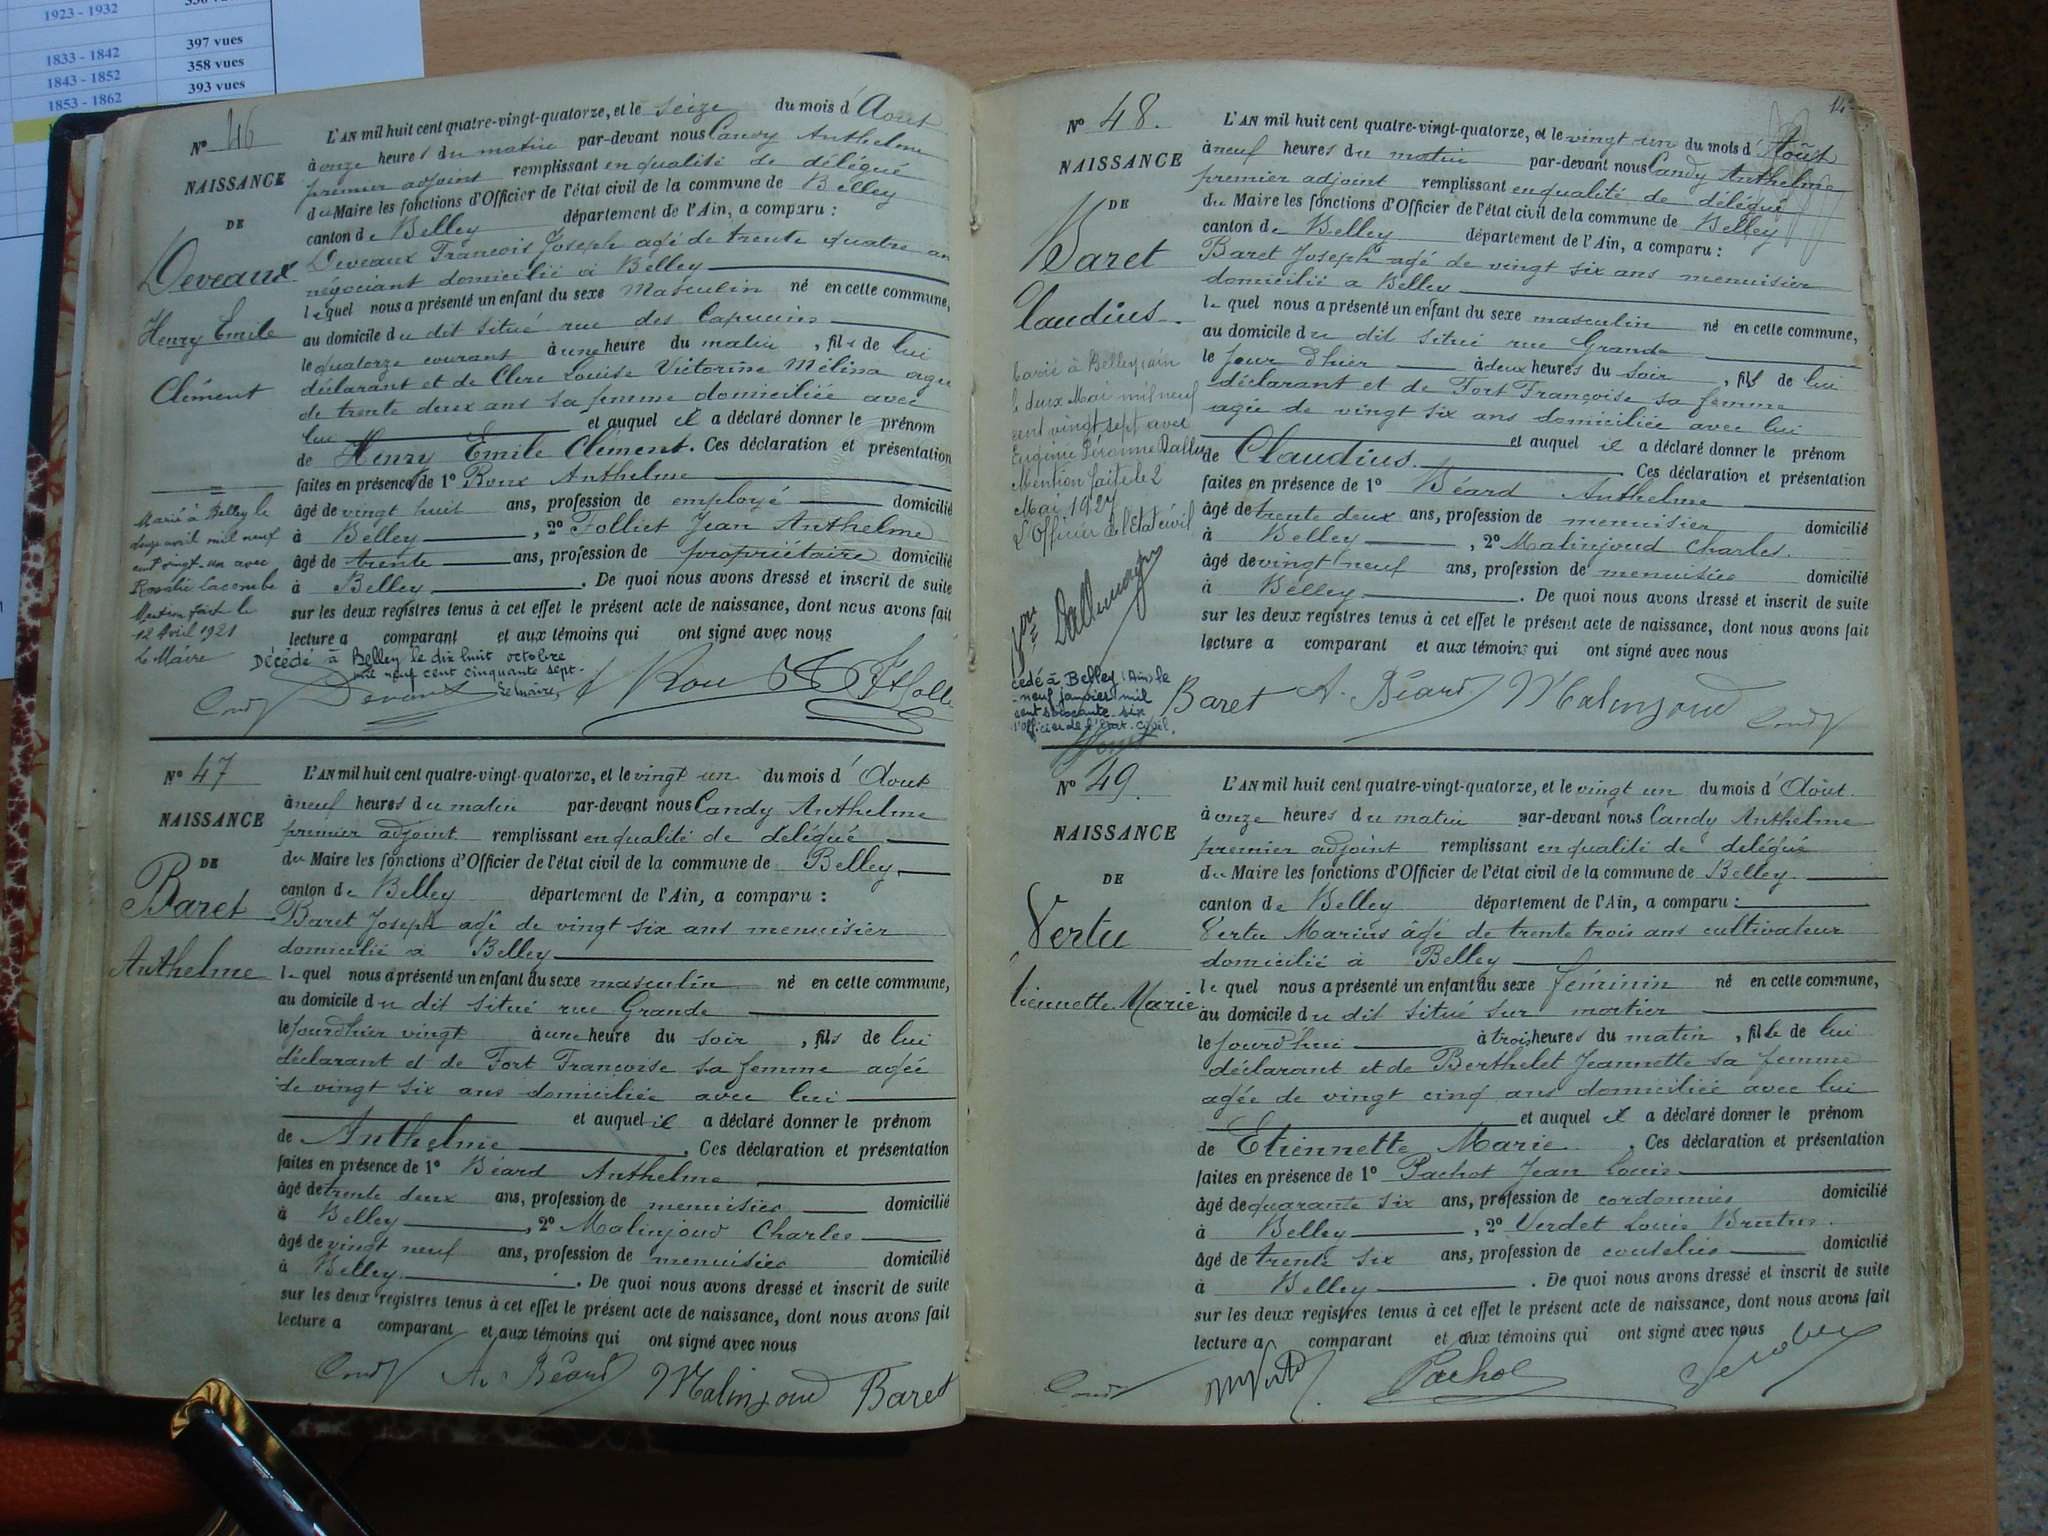 1923 - 1932
1833 - 1842 397 vues
1843 - 1852 358 vues
1853 - 1862 393 vues
N° 46
NAISSANCE
DE
Deveaux
Henry Emile
Clément
L'AN mil huit cent quatre-vingt-quatorze, et le seize du mois d'Aout
à onze heures du matin par-devant nous Candy Anthelme
premier adjoint remplissant en qualité de délégué
du Maire les fonctions d'Officier de l'état civil de la commune de Belley
canton de Belley département de l'Ain, a comparu :
Deveaux François Joseph agé de trente quatre an
négociant domicilié à Belley
lequel nous a présenté un enfant du sexe Masculin né en cette commune,
au domicile du dit situé rue des Capucins
le quatorze courant à une heure du matin, fils de lui
déclarant et de Clerc Louise Victorine Mélina agée
de trente deux ans sa femme domiciliée avec
lui et auquel il a déclaré donner le prénom
de Henry Emile Clément. Ces déclaration et présentation
faites en présence de 1° Roux Anthelme
âgé de vingt huit ans, profession de employé domicilié
à Belley, 2° Folliet Jean Anthelme
âgé de trente ans, profession de propriétaire domicilié
à Belley. De quoi nous avons dressé et inscrit de suite
sur les deux registres tenus à cet effet le présent acte de naissance, dont nous avons fait
lecture a comparant et aux témoins qui ont signé avec nous
Marié à Belley le
douze avril mil neuf
cent vingt-un avec
Rosalie Lacombe
Mention faite le
12 Avril 1921
Le Maire
Décédé à Belley le dix huit octobre
mil neuf cent cinquante sept.
Le Maire,
Candy
N° 47
NAISSANCE
DE
Baret
Anthelme
L'AN mil huit cent quatre-vingt-quatorze, et le vingt un du mois d'Aout
à neuf heures du matin par-devant nous Candy Anthelme
premier adjoint remplissant en qualité de délégué
du Maire les fonctions d'Officier de l'état civil de la commune de Belley
canton de Belley département de l'Ain, a comparu :
Baret Joseph agé de vingt six ans menuisier
domicilié à Belley
lequel nous a présenté un enfant du sexe masculin né en cette commune,
au domicile du dit situé rue Grande
le jourdhier vingt à une heure du soir, fils de lui
déclarant et de Fort Françoise sa femme agée
de vingt six ans domiciliée avec lui
et auquel il a déclaré donner le prénom
de Anthelme. Ces déclaration et présentation
faites en présence de 1° Béard Anthelme
âgé de trente deux ans, profession de menuisier domicilié
à Belley, 2° Malinjoud Charles
âgé de vingt neuf ans, profession de menuisier domicilié
à Belley. De quoi nous avons dressé et inscrit de suite
sur les deux registres tenus à cet effet le présent acte de naissance, dont nous avons fait
lecture a comparant et aux témoins qui ont signé avec nous
Candy A. Béard Malinjoud Baret
14
N° 48.
NAISSANCE
DE
Baret
Claudius.
L'AN mil huit cent quatre-vingt-quatorze, et le vingt un du mois d'Août
à neuf heures du matin par-devant nous Candy Anthelme
premier adjoint remplissant en qualité de délégué
du Maire les fonctions d'Officier de l'état civil de la commune de Belley
canton de Belley département de l'Ain, a comparu :
Baret Joseph agé de vingt six ans menuisier
domicilié a Belley
lequel nous a présenté un enfant du sexe masculin né en cette commune,
au domicile du dit situé rue Grande
le jour d'hier à deux heures du soir, fils de lui
déclarant et de Fort Françoise sa femme
agée de vingt six ans domiciliée avec lui
et auquel il a déclaré donner le prénom
de Claudius. Ces déclaration et présentation
faites en présence de 1° Béard Anthelme
âgé de trente deux ans, profession de menuisier domicilié
à Belley, 2° Malinjoud Charles.
âgé de vingt neuf ans, profession de menuisier domicilié
à Belley. De quoi nous avons dressé et inscrit de suite
sur les deux registres tenus à cet effet le présent acte de naissance, dont nous avons fait
lecture a comparant et aux témoins qui ont signé avec nous
Marié à Belley, Ain
le deux Mai mil neuf
cent vingt sept avec
Eugénie Péronne
Mention faite le 2
Mai 1927
L'Officier de l'Etat civil
cédé à Belley (Ain) le
neuf janvier mil
cent soixante-six
l'Officier de l'Etat-Civil,
Baret A. Béard Malinjoud Candy
N° 49.
NAISSANCE
DE
Vertu
tiennette Marie
L'AN mil huit cent quatre-vingt-quatorze, et le vingt un du mois d'Août.
à onze heures du matin par-devant nous Candy Anthelme
premier adjoint remplissant en qualité de délégué
du Maire les fonctions d'Officier de l'état civil de la commune de Belley
canton de Belley département de l'Ain, a comparu :
Vertu Marius âgé de trente trois ans cultivateur
domicilié à Belley
lequel nous a présenté un enfant du sexe féminin né en cette commune,
au domicile du dit situé sur mortier
le jourd'hui à trois heures du matin, fille de lui
déclarant et de Berthelet Jeannette sa femme
agée de vingt cinq ans domiciliée avec lui
et auquel il a déclaré donner le prénom
de Etiennette Marie. Ces déclaration et présentation
faites en présence de 1° Pachot Jean Louis
âgé de quarante six ans, profession de cordonnier domicilié
à Belley, 2° Verdet Louis Brutus.
âgé de trente six ans, profession de coutelier domicilié
à Belley. De quoi nous avons dressé et inscrit de suite
sur les deux registres tenus à cet effet le présent acte de naissance, dont nous avons fait
lecture a comparant et aux témoins qui ont signé avec nous
Candy Pachot